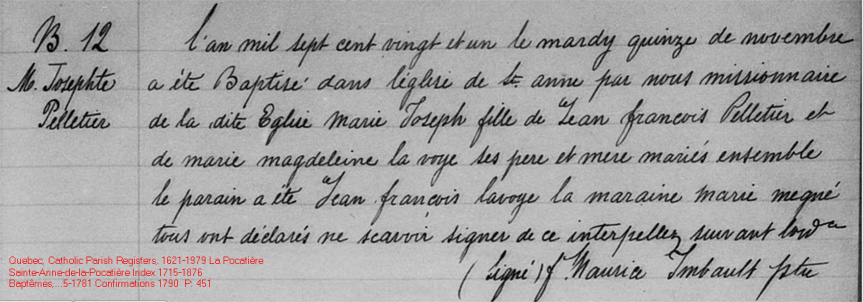 B. 12
M. Josephte
Pelletier
L'an mil sept cent vingt et un le mardy quinze de novembre
a été Baptisé dans l'église de St anne par nous missionnaire
de la dite Eglise marie Joseph fille de Jean francois Pelletier et
de marie magdeleine la voye ses pere et mere mariés ensemble
le parain a été Jean françois lavoye la maraine marie megné
tous ont déclarés ne scavoir signer de ce interpellez suivant lord ce
(Signé) f. Maurice Imbault ptre
Quebec, Catholic Parish Registers, 1621-1979 La Pocatière
Sainte-Anne-de-la-Pocatière Index 1715-1876
Baptêmes,...5-1781 Confirmations 1790 P: 451